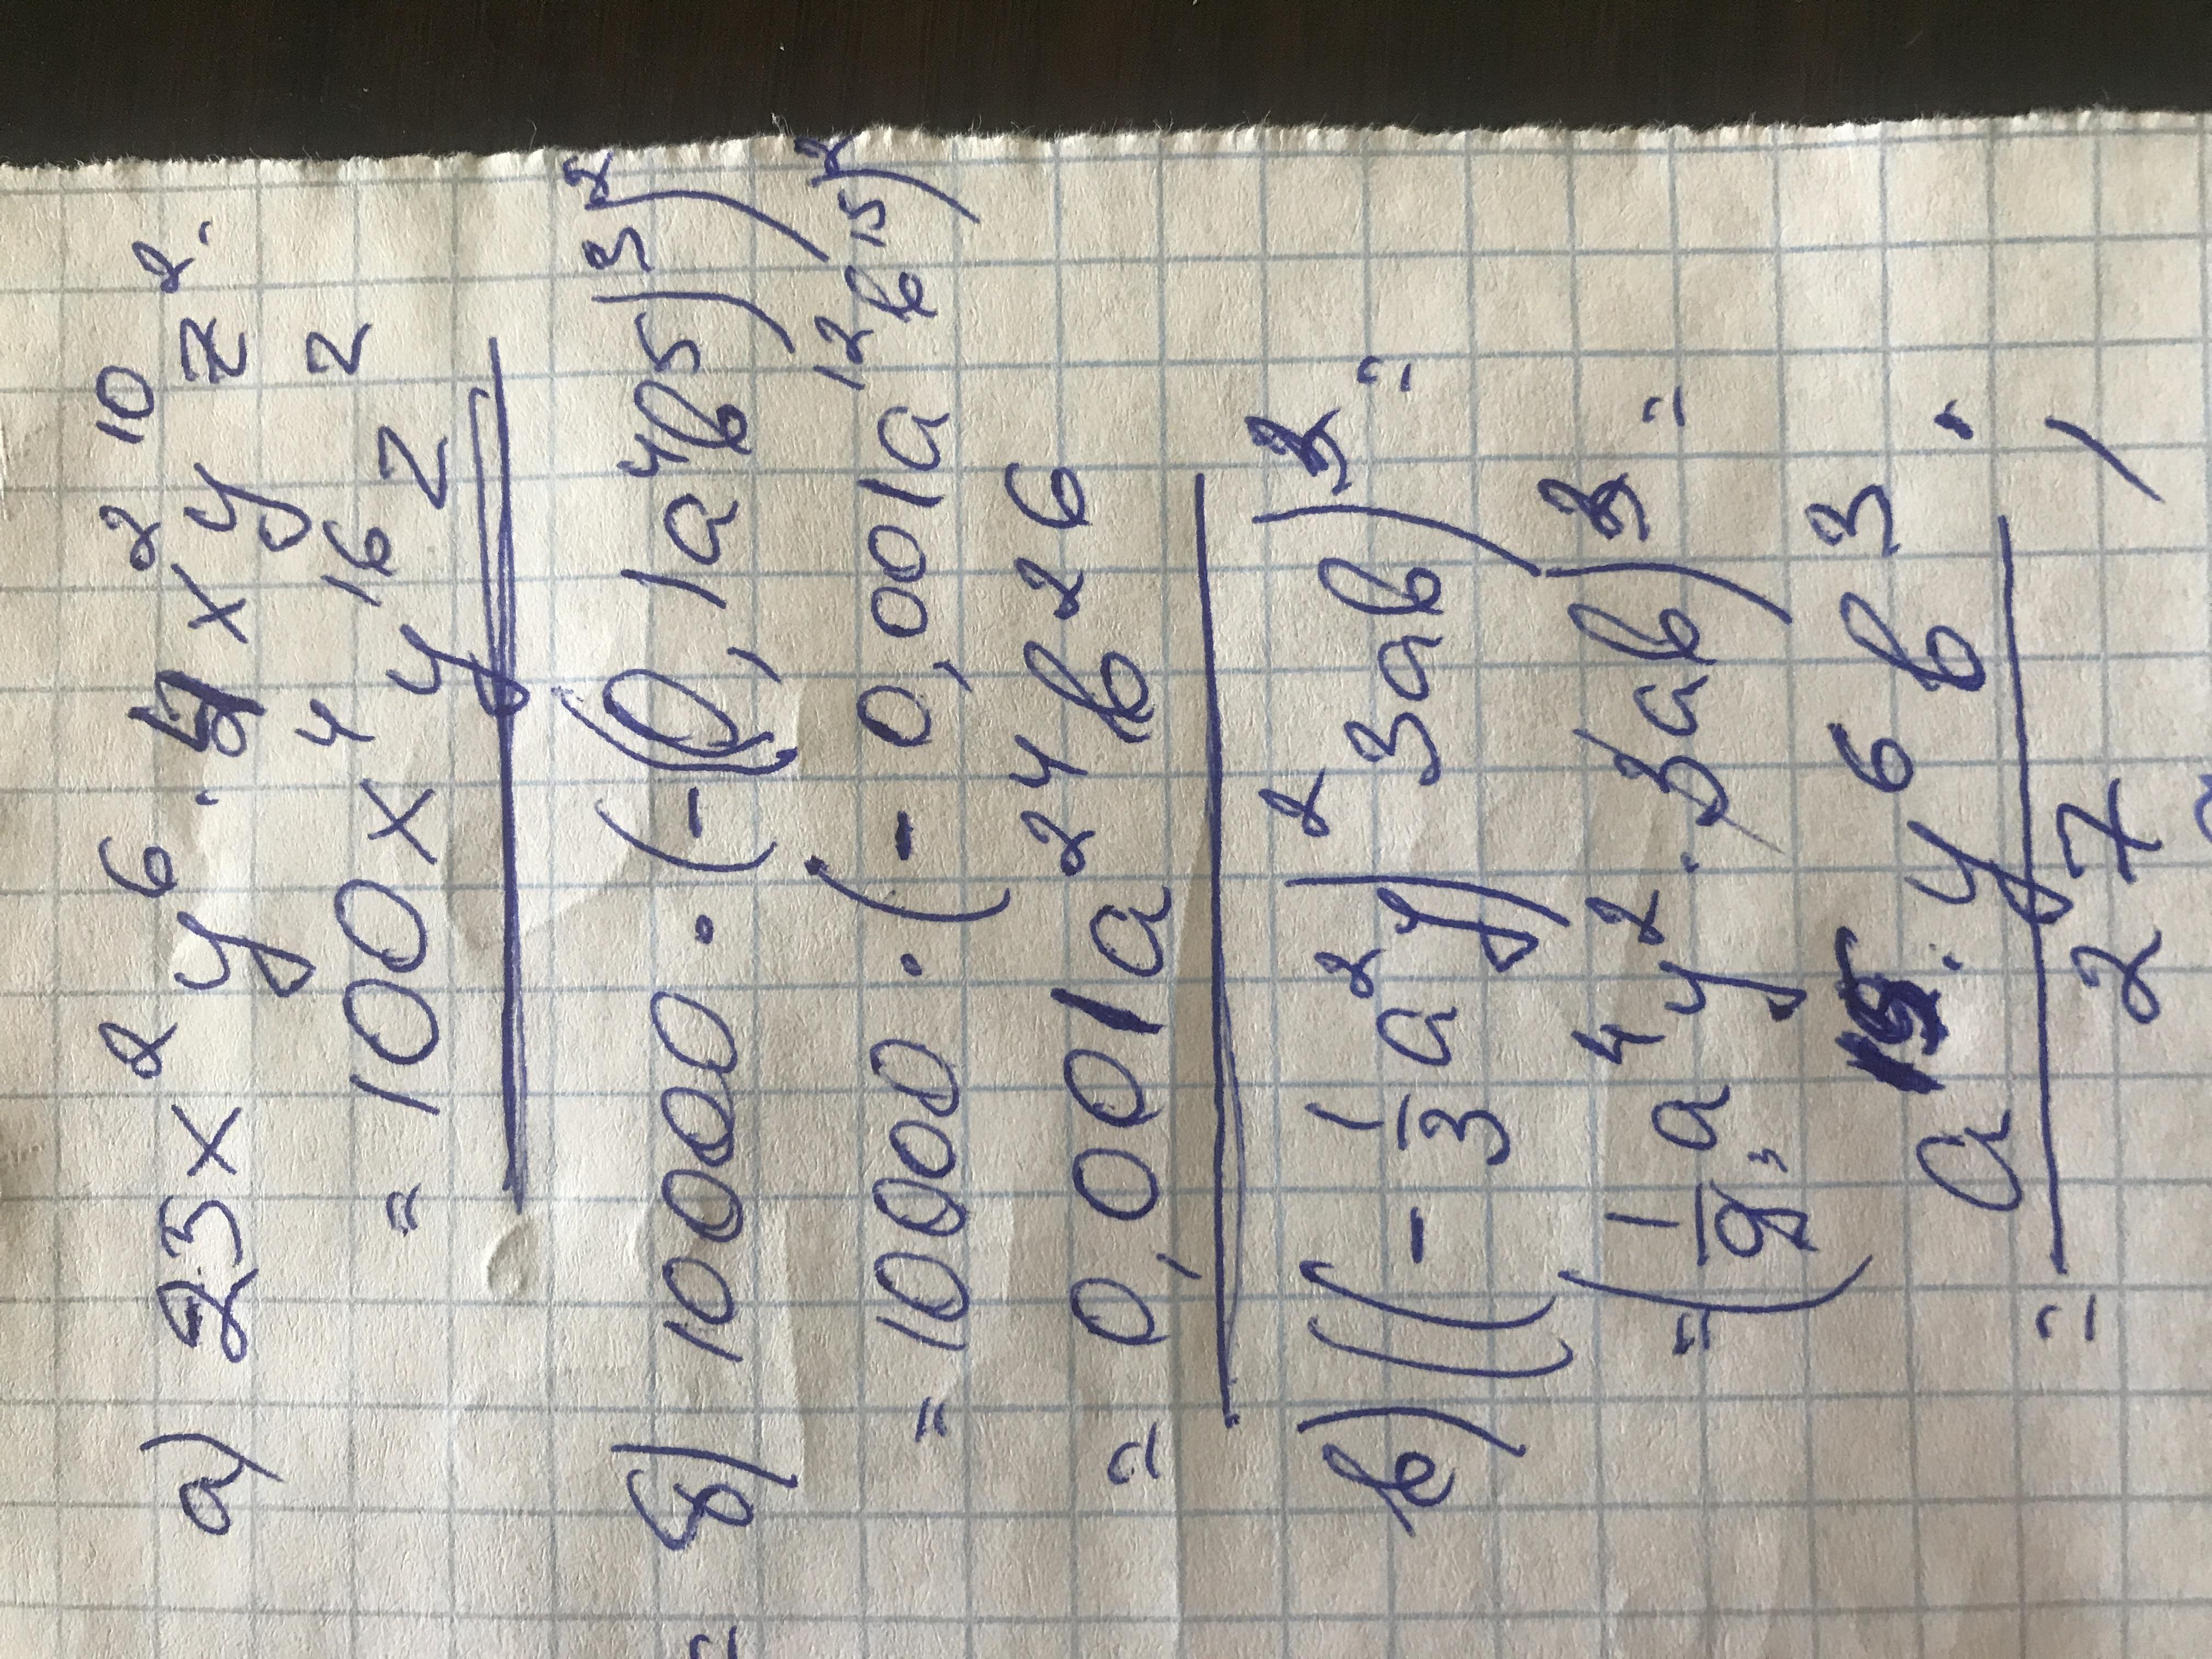 а) 23x²y⁶ · 4x²y¹⁰z².
= 100x⁴y¹⁶z²
б) 10000 · (-(0,1a⁴b⁵)³)²
= 10000 · (-0,001a¹²b¹⁵)²
= 0,001a²⁴b²⁶
в) ((-1/3 a²y)² 3ab)³ =
= (1/9 a⁴y² · 3ab)³ =
= a¹⁵ · y⁶b³ / 27